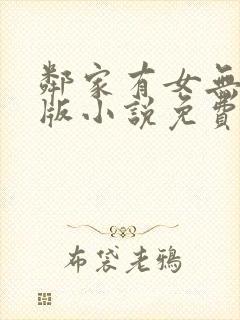 鄰家有女無
版小說免費
布袋老鴉